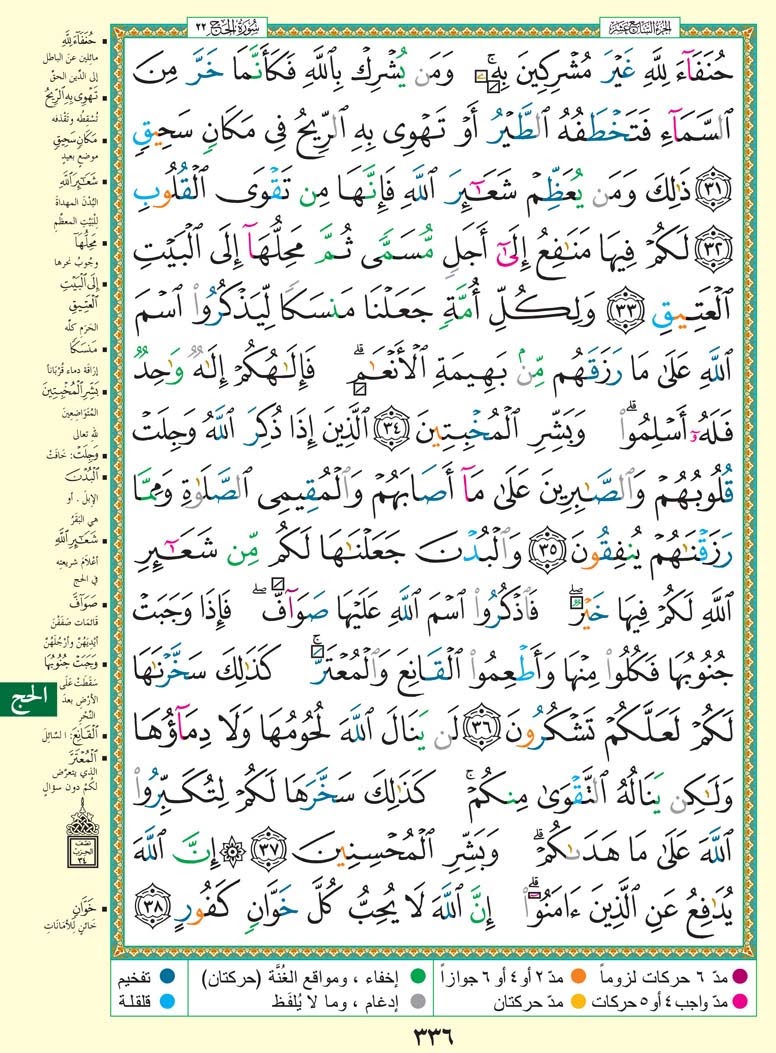 سُورَةُ الحَجِّ ٢٢
الجزء السابع عشر
حُنَفَآءَ لِلَّهِ غَيْرَ مُشْرِكِينَ بِهِۦۚ وَمَن يُشْرِكْ بِٱللَّهِ فَكَأَنَّمَا خَرَّ مِنَ
ٱلسَّمَآءِ فَتَخْطَفُهُ ٱلطَّيْرُ أَوْ تَهْوِى بِهِ ٱلرِّيحُ فِى مَكَانٍ سَحِيقٍ
٣١ ذَٰلِكَ وَمَن يُعَظِّمْ شَعَـٰٓئِرَ ٱللَّهِ فَإِنَّهَا مِن تَقْوَى ٱلْقُلُوبِ
٣٢ لَكُمْ فِيهَا مَنَـٰفِعُ إِلَىٰٓ أَجَلٍ مُّسَمًّى ثُمَّ مَحِلُّهَآ إِلَى ٱلْبَيْتِ
ٱلْعَتِيقِ ٣٣ وَلِكُلِّ أُمَّةٍ جَعَلْنَا مَنسَكًا لِّيَذْكُرُوا۟ ٱسْمَ
ٱللَّهِ عَلَىٰ مَا رَزَقَهُم مِّنۢ بَهِيمَةِ ٱلْأَنْعَـٰمِۗ فَإِلَـٰهُكُمْ إِلَـٰهٌ وَٰحِدٌ
فَلَهُۥٓ أَسْلِمُوا۟ۗ وَبَشِّرِ ٱلْمُخْبِتِينَ ٣٤ ٱلَّذِينَ إِذَا ذُكِرَ ٱللَّهُ وَجِلَتْ
قُلُوبُهُمْ وَٱلصَّـٰبِرِينَ عَلَىٰ مَآ أَصَابَهُمْ وَٱلْمُقِيمِى ٱلصَّلَوٰةِ وَمِمَّا
رَزَقْنَـٰهُمْ يُنفِقُونَ ٣٥ وَٱلْبُدْنَ جَعَلْنَـٰهَا لَكُم مِّن شَعَـٰٓئِرِ
ٱللَّهِ لَكُمْ فِيهَا خَيْرٌۖ فَٱذْكُرُوا۟ ٱسْمَ ٱللَّهِ عَلَيْهَا صَوَآفَّۖ فَإِذَا وَجَبَتْ
جُنُوبُهَا فَكُلُوا۟ مِنْهَا وَأَطْعِمُوا۟ ٱلْقَانِعَ وَٱلْمُعْتَرَّۚ كَذَٰلِكَ سَخَّرْنَـٰهَا
لَكُمْ لَعَلَّكُمْ تَشْكُرُونَ ٣٦ لَن يَنَالَ ٱللَّهَ لُحُومُهَا وَلَا دِمَآؤُهَا
وَلَـٰكِن يَنَالُهُ ٱلتَّقْوَىٰ مِنكُمْۚ كَذَٰلِكَ سَخَّرَهَا لَكُمْ لِتُكَبِّرُوا۟
ٱللَّهَ عَلَىٰ مَا هَدَىٰكُمْۗ وَبَشِّرِ ٱلْمُحْسِنِينَ ٣٧ ۞ إِنَّ ٱللَّهَ
يُدَٰفِعُ عَنِ ٱلَّذِينَ ءَامَنُوٓا۟ۗ إِنَّ ٱللَّهَ لَا يُحِبُّ كُلَّ خَوَّانٍ كَفُورٍ ٣٨
حُنَفَآءَ لِلَّهِ
مائلين عن الباطل
إلى الدّين الحقّ
تَهْوِى بِهِ ٱلرِّيحُ
تُسْقِطُه وتَقْذفه
مَكَانٍ سَحِيقٍ
موضع بعيدٍ
شَعَـٰٓئِرَ ٱللَّهِ
البُدْنَ المهداةَ
لِلْبَيْتِ المعظَّمِ
مَحِلُّهَآ
وجُوبُ نحرها
إِلَى ٱلْبَيْتِ
ٱلْعَتِيقِ
الحَرَمِ كلّه
مَنسَكًا
إرَاقَةَ دماءٍ قُرْبَاناً
بَشِّرِ ٱلْمُخْبِتِينَ
المُتَوَاضِعِينَ
لله تعالى
وَجِلَتْ: خَافَتْ
ٱلْبُدْنَ
الإبلَ . أو
هي البَقَرُ
شَعَـٰٓئِرِ ٱللَّهِ
أعْلَامِ شريعتِه
في الحج
صَوَآفَّ
قائمات صَفَفْنَ
أيْدِيَهُنَّ وأرْجُلَهُنَّ
وَجَبَتْ جُنُوبُهَا
سَقَطَتْ عَلَى
الأرْضِ بعدَ
النَّحْرِ
ٱلْقَانِعَ: السّائِلَ
ٱلْمُعْتَرَّ
الذي يتعرَّض
لَكُمْ دون سؤالٍ
نصف
الحزب
٣٤
خَوَّانٍ
خائنٍ لِلأمَانَاتِ
الحج
مدّ ٦ حركات لزوماً
مدّ ٢ أو ٤ أو ٦ جوازاً
إخفاء ، ومواقع الغُنَّة (حركتان)
تفخيم
مدّ واجب ٤ أو ٥ حركات
مدّ حركتان
إدغام ، وما لا يُلفَظ
قلقلة
٣٣٦